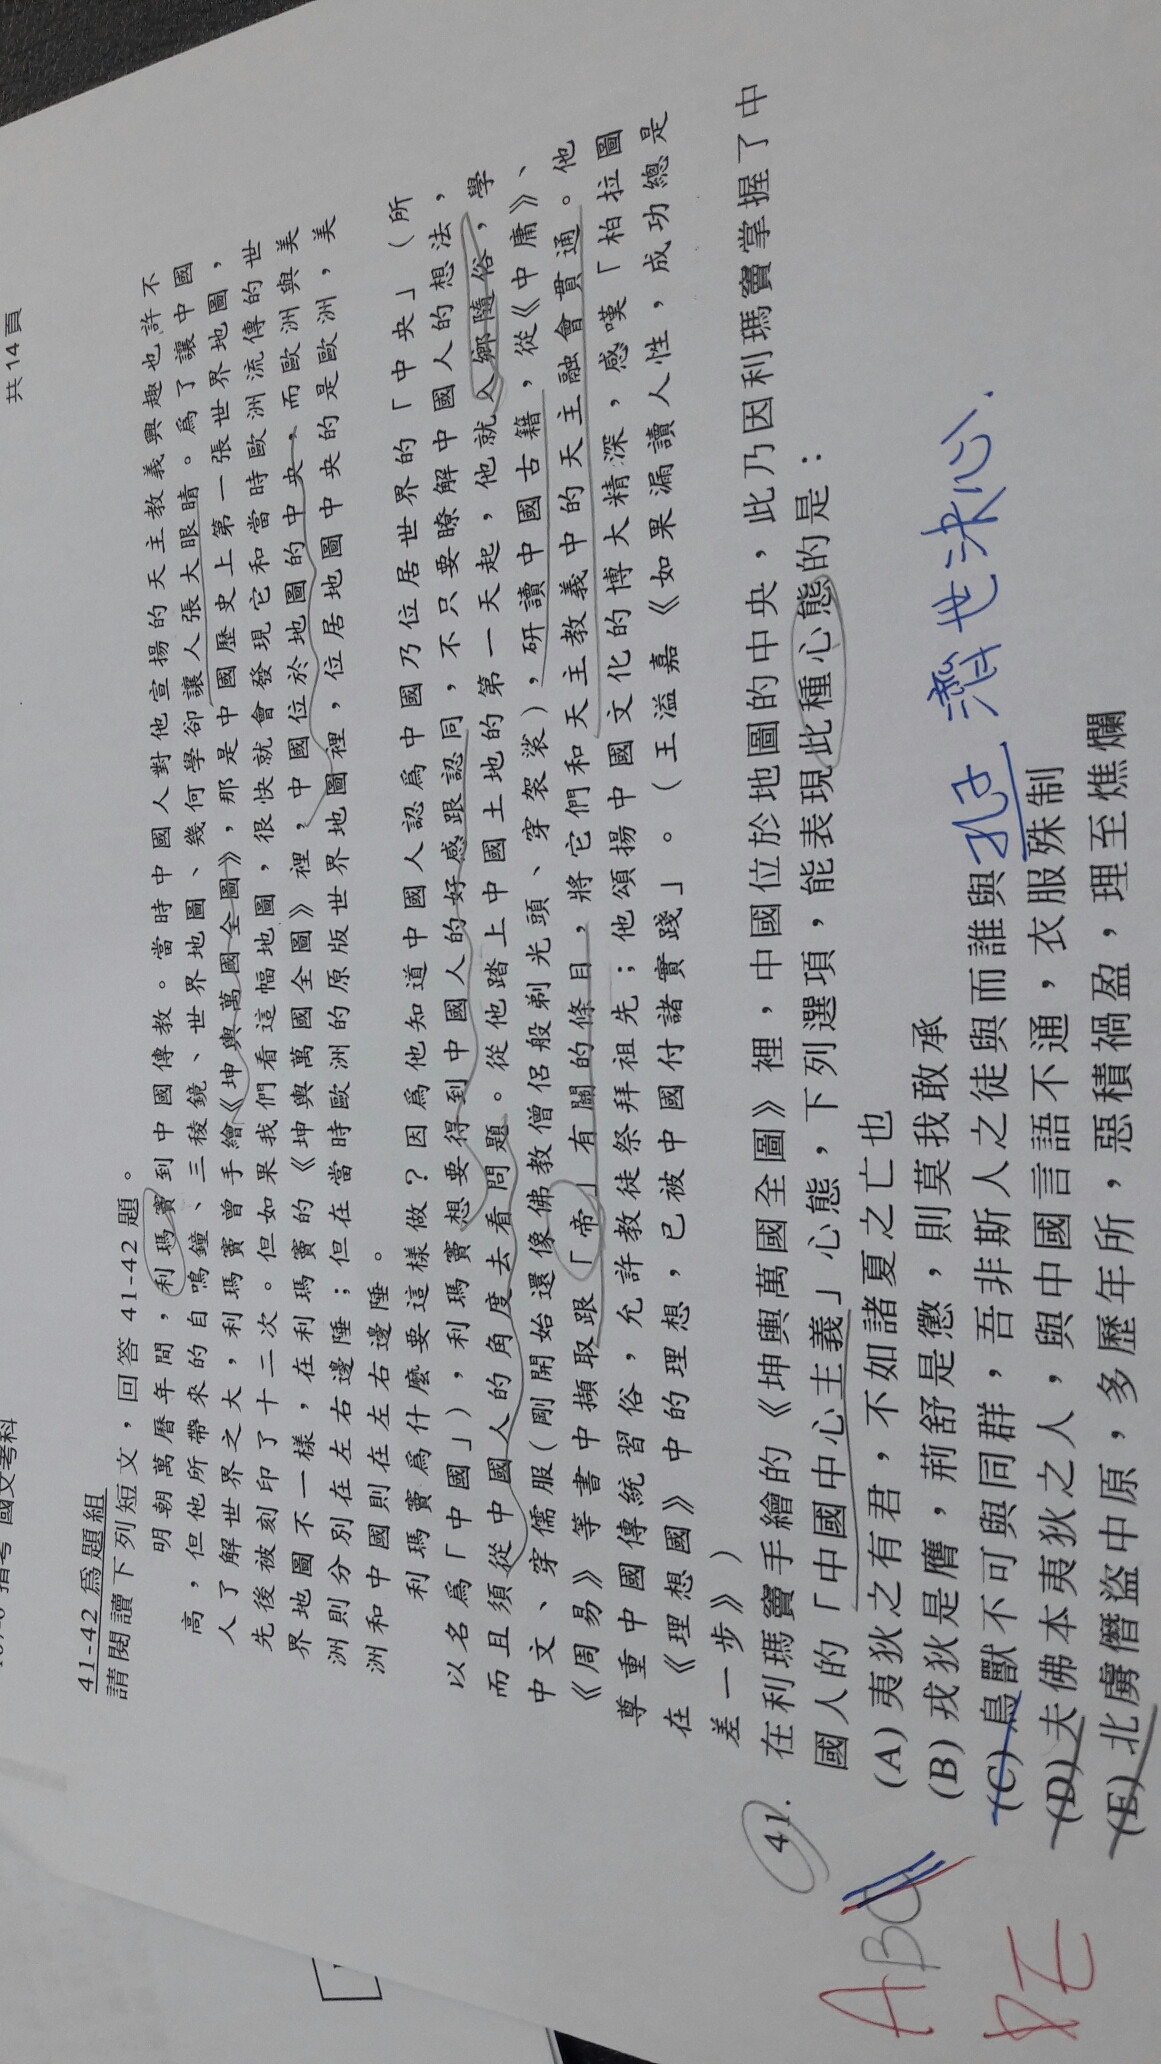 共 14 頁
指考 國文考科
41-42 為題組
請閱讀下列短文，回答 41-42 題。
明朝萬曆年間，利瑪竇到中國傳教。當時中國人對他宣揚的天主教義興趣也許不
高，但他所帶來的自鳴鐘、三稜鏡、世界地圖、幾何學卻讓人張大眼睛。為了讓中國
人了解世界之大，利瑪竇曾手繪《坤輿萬國全圖》，那是中國歷史上第一張世界地圖，
先後被刻印了十二次。但如果我們看這幅地圖，很快就會發現它和當時歐洲流傳的世
界地圖不一樣，在利瑪竇的《坤輿萬國全圖》裡，中國位於地圖的中央，而歐洲與美
洲則分別在左右邊陲；但在當時歐洲的原版世界地圖裡，位居地圖中央的是歐洲，美
洲和中國則在左右邊陲。
利瑪竇為什麼要這樣做？因為他知道中國人認為中國乃位居世界的「中央」（所
以名為「中國」），利瑪竇想要得到中國人的好感跟認同，不只要瞭解中國人的想法，
而且須從中國人的角度去看問題。從他踏上中國土地的第一天起，他就入鄉隨俗，學
中文、穿儒服（剛開始還像佛教僧侶般剃光頭、穿袈裟），研讀中國古籍，從《中庸》、
《周易》等書中擷取跟「帝」有關的條目，將它們和天主教義中的天主融會貫通。他
尊重中國傳統習俗，允許教徒祭拜祖先；他頌揚中國文化的博大精深，感嘆「柏拉圖
在《理想國》中的理想，已被中國付諸實踐」。（王溢嘉《如果漏讀人性，成功總是
差一步》）
41. 在利瑪竇手繪的《坤輿萬國全圖》裡，中國位於地圖的中央，此乃因利瑪竇掌握了中
國人的「中國中心主義」心態，下列選項，能表現此種心態的是：
(A) 夷狄之有君，不如諸夏之亡也
(B) 戎狄是膺，荊舒是懲，則莫我敢承
(C) 鳥獸不可與同群，吾非斯人之徒與而誰與 孔子 濟世決心.
(D) 夫佛本夷狄之人，與中國言語不通，衣服殊制
(E) 北虜僭盜中原，多歷年所，惡積禍盈，理至燋爛
ABC